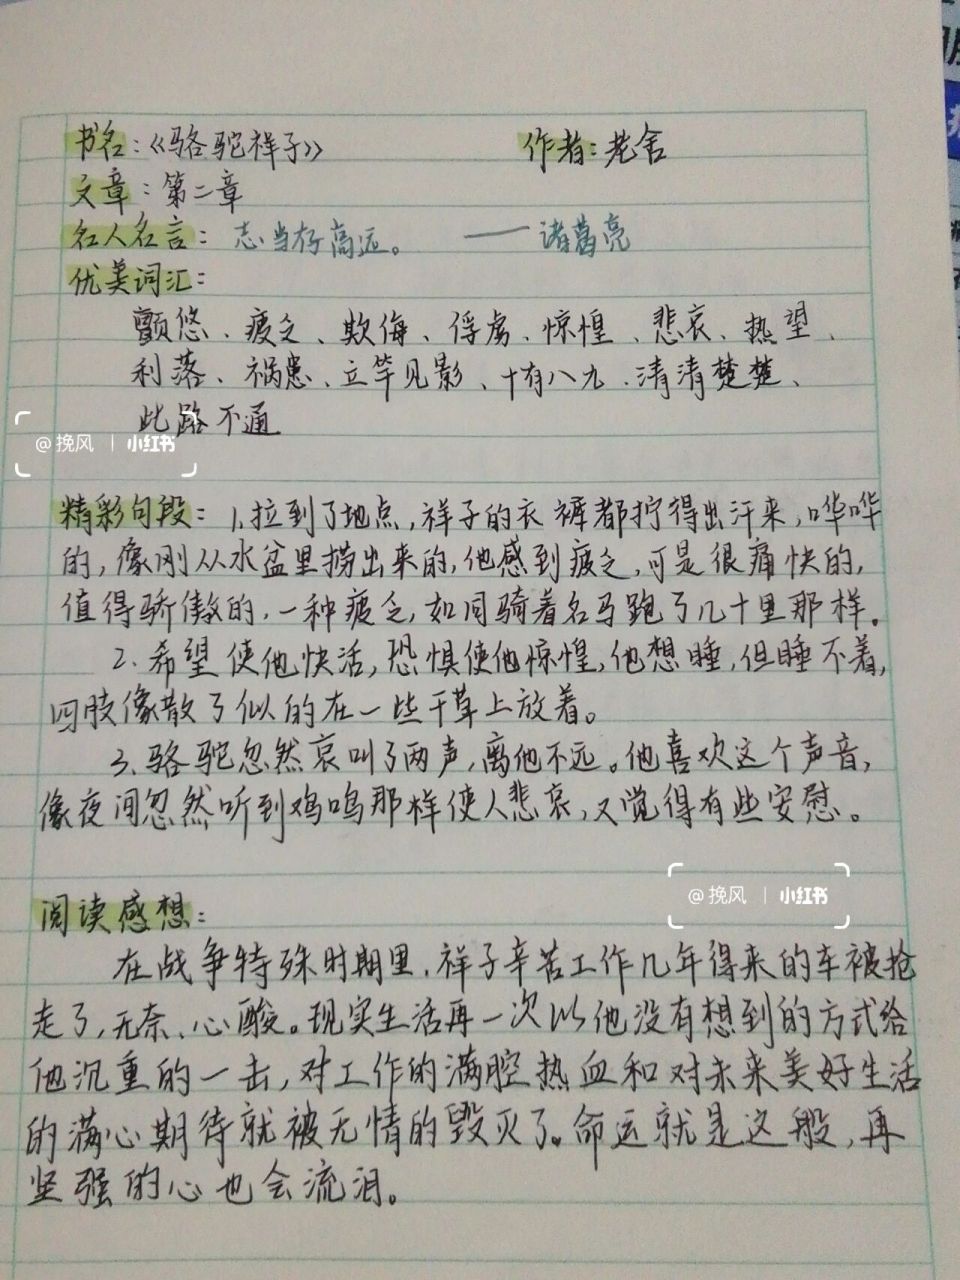 书名：《骆驼祥子》 作者：老舍
文章：第二章
名人名言：志当存高远。 ——诸葛亮
优美词汇：
颤悠、疲乏、欺侮、俘虏、惊惶、悲哀、热望、
利落、祸患、立竿见影、十有八九、清清楚楚、
此路不通
@挽风 | 小红书
精彩句段：1、拉到了地点，祥子的衣裤都拧得出汗来，哗哗
的，像刚从水盆里捞出来的，他感到疲乏，可是很痛快的，
值得骄傲的，一种疲乏，如同骑着名马跑了几十里那样。
2、希望使他快活，恐惧使他惊惶，他想睡，但睡不着，
四肢像散了似的在一些干草上放着。
3、骆驼忽然哀叫了两声，离他不远。他喜欢这个声音，
像夜间忽然听到鸡鸣那样使人悲哀，又觉得有些安慰。
@挽风 | 小红书
阅读感想：
在战争特殊时期里，祥子辛苦工作几年得来的车被抢
走了，无奈、心酸。现实生活再一次以他没有想到的方式给
他沉重的一击，对工作的满腔热血和对未来美好生活
的满心期待就被无情的毁灭了。命运就是这般，再
坚强的心也会流泪。